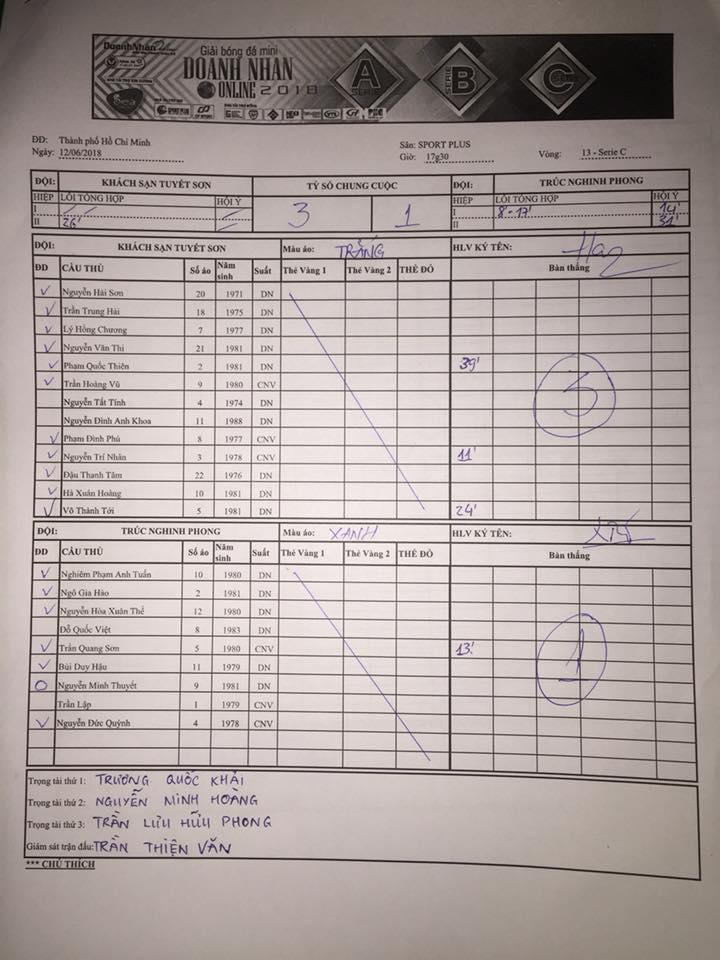 DoanhNhan
Giải bóng đá mini
DOANH NHAN
ONLINE 2018
A
SERIE
B
SERIE
C
SERIE
Sea
SPORT PLUS
ĐĐ: Thành phố Hồ Chí Minh
Sân: SPORT PLUS
Ngày: 12/06/2018
Giờ: 17g30
Vòng: 13 - Serie C
ĐỘI: KHÁCH SẠN TUYẾT SƠN TỶ SỐ CHUNG CUỘC ĐỘI: TRÚC NGHINH PHONG
HIỆP LỖI TỔNG HỢP HỘI Ý 3 1 HIỆP LỖI TỔNG HỢP HỘI Ý
I I 8'-17' 14'
II 26' II 31'
ĐỘI: KHÁCH SẠN TUYẾT SƠN Màu áo: TRẮNG HLV KÝ TÊN:
ĐD CẦU THỦ Số áo Năm sinh Suất Thẻ Vàng 1 Thẻ Vàng 2 THẺ ĐỎ Bàn thắng
✓ Nguyễn Hải Sơn 20 1971 DN
✓ Trần Trung Hải 18 1975 DN
✓ Lý Hồng Chương 7 1977 DN
✓ Nguyễn Văn Thi 21 1981 DN
✓ Phạm Quốc Thiên 2 1981 DN 39'
✓ Trần Hoàng Vũ 9 1980 CNV
Nguyễn Tất Tính 4 1974 DN
Nguyễn Đình Anh Khoa 11 1988 DN
✓ Phạm Đình Phú 8 1977 CNV
✓ Nguyễn Trí Nhân 3 1978 CNV 11'
✓ Đậu Thanh Tâm 22 1976 DN
✓ Hà Xuân Hoàng 10 1981 DN
✓ Võ Thành Tới 5 1981 DN 24'
3
ĐỘI: TRÚC NGHINH PHONG Màu áo: XANH HLV KÝ TÊN:
ĐD CẦU THỦ Số áo Năm sinh Suất Thẻ Vàng 1 Thẻ Vàng 2 THẺ ĐỎ Bàn thắng
✓ Nghiêm Phạm Anh Tuấn 10 1980 DN
✓ Ngô Gia Hào 2 1981 DN
✓ Nguyễn Hòa Xuân Thế 12 1980 DN
Đỗ Quốc Việt 8 1983 DN
✓ Trần Quang Sơn 5 1980 CNV 13'
✓ Bùi Duy Hậu 11 1979 DN
O Nguyễn Minh Thuyết 9 1981 DN
Trần Lập 1 1979 CNV
✓ Nguyễn Đức Quỳnh 4 1978 CNV
1
Trọng tài thứ 1: TRƯƠNG QUỐC KHẢI
Trọng tài thứ 2: NGUYỄN MINH HOÀNG
Trọng tài thứ 3: TRẦN LƯU HỮU PHONG
Giám sát trận đấu: TRẦN THIỆN VĂN
*** CHÚ THÍCH